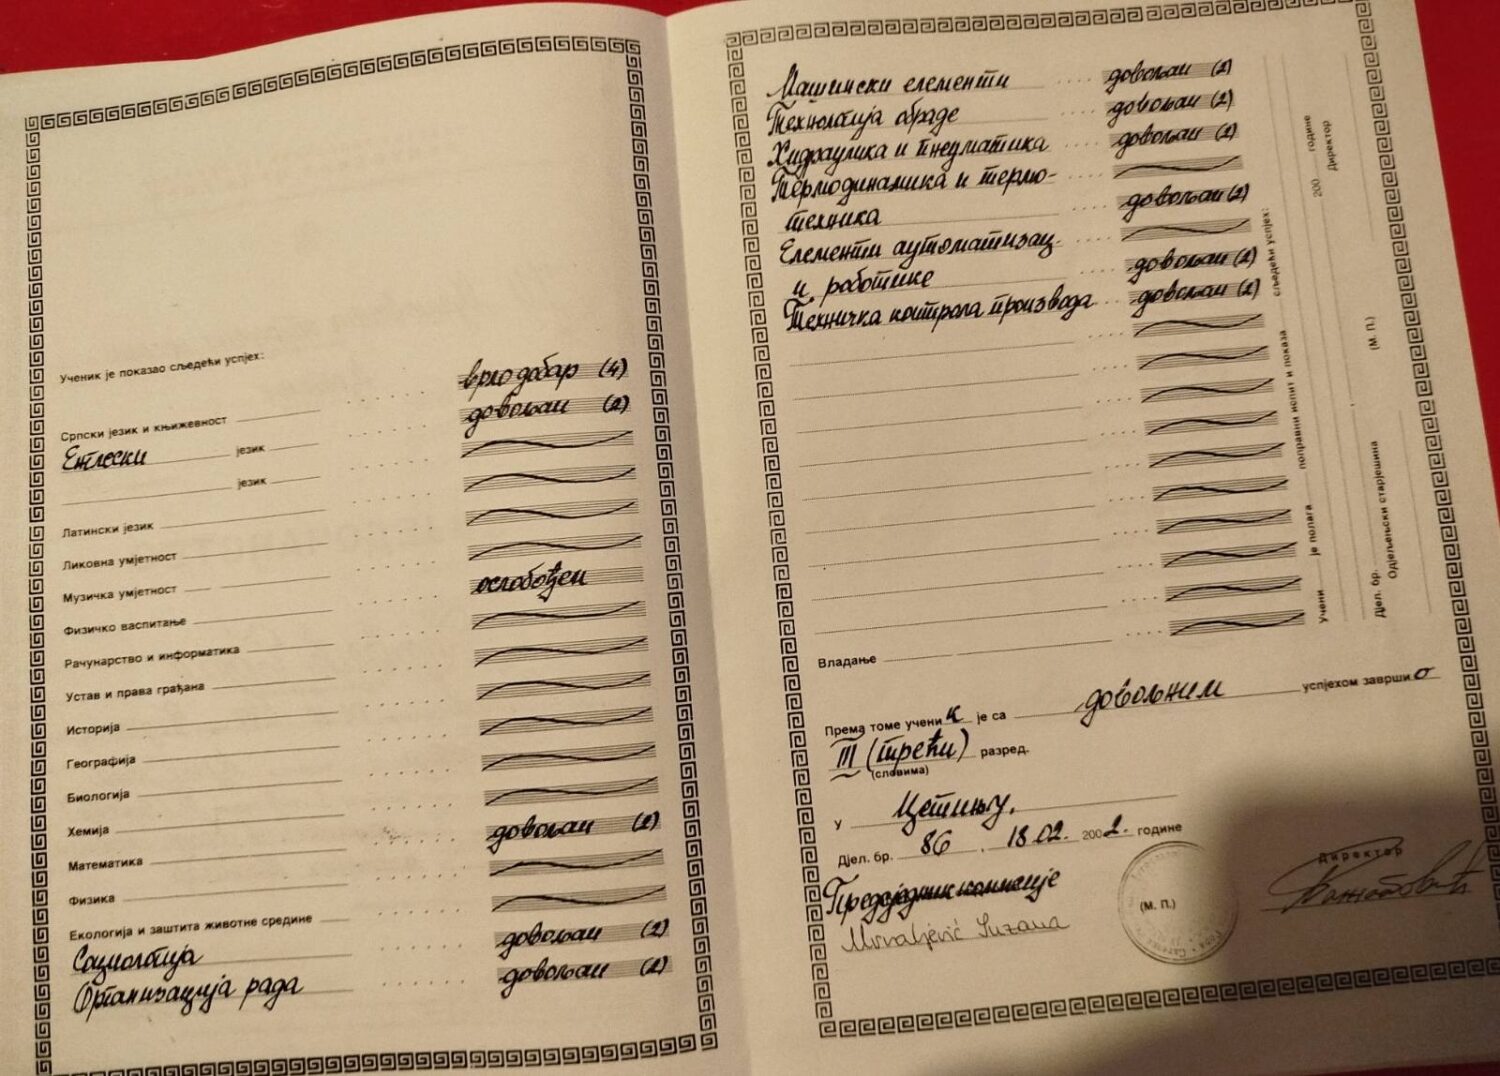 Ученик је показао сљедећи успјех:
Српски језик и књижевност врло добар (4)
Енглески језик довољан (2)
језик
Латински језик
Ликовна умјетност
Музичка умјетност
Физичко васпитање ослобођен
Рачунарство и информатика
Устав и права грађана
Историја
Географија
Биологија
Хемија
Математика довољан (2)
Физика
Екологија и заштита животне средине
Социологија довољан (2)
Организација рада довољан (2)
Машински елементи довољан (2)
Технологија обраде довољан (2)
Хидраулика и пнеуматика довољан (2)
Термодинамика и термо-
техника довољан (2)
Елементи аутоматизац.
и роботике довољан (2)
Техничка контрола производа довољан (2)
Владање
Према томе ученик је са довољним успјехом завршио
III (трећи) разред.
(словима)
У Цетињу,
Дјел. бр. 86 . 18.02. 2002. године
Предсједник комисије
Директор
(М. П.)
Учени је полага поправни испит и показа сљедећи успјех:
Дјел. бр. 200 године
Одјељењски старјешина (М. П.) Директор